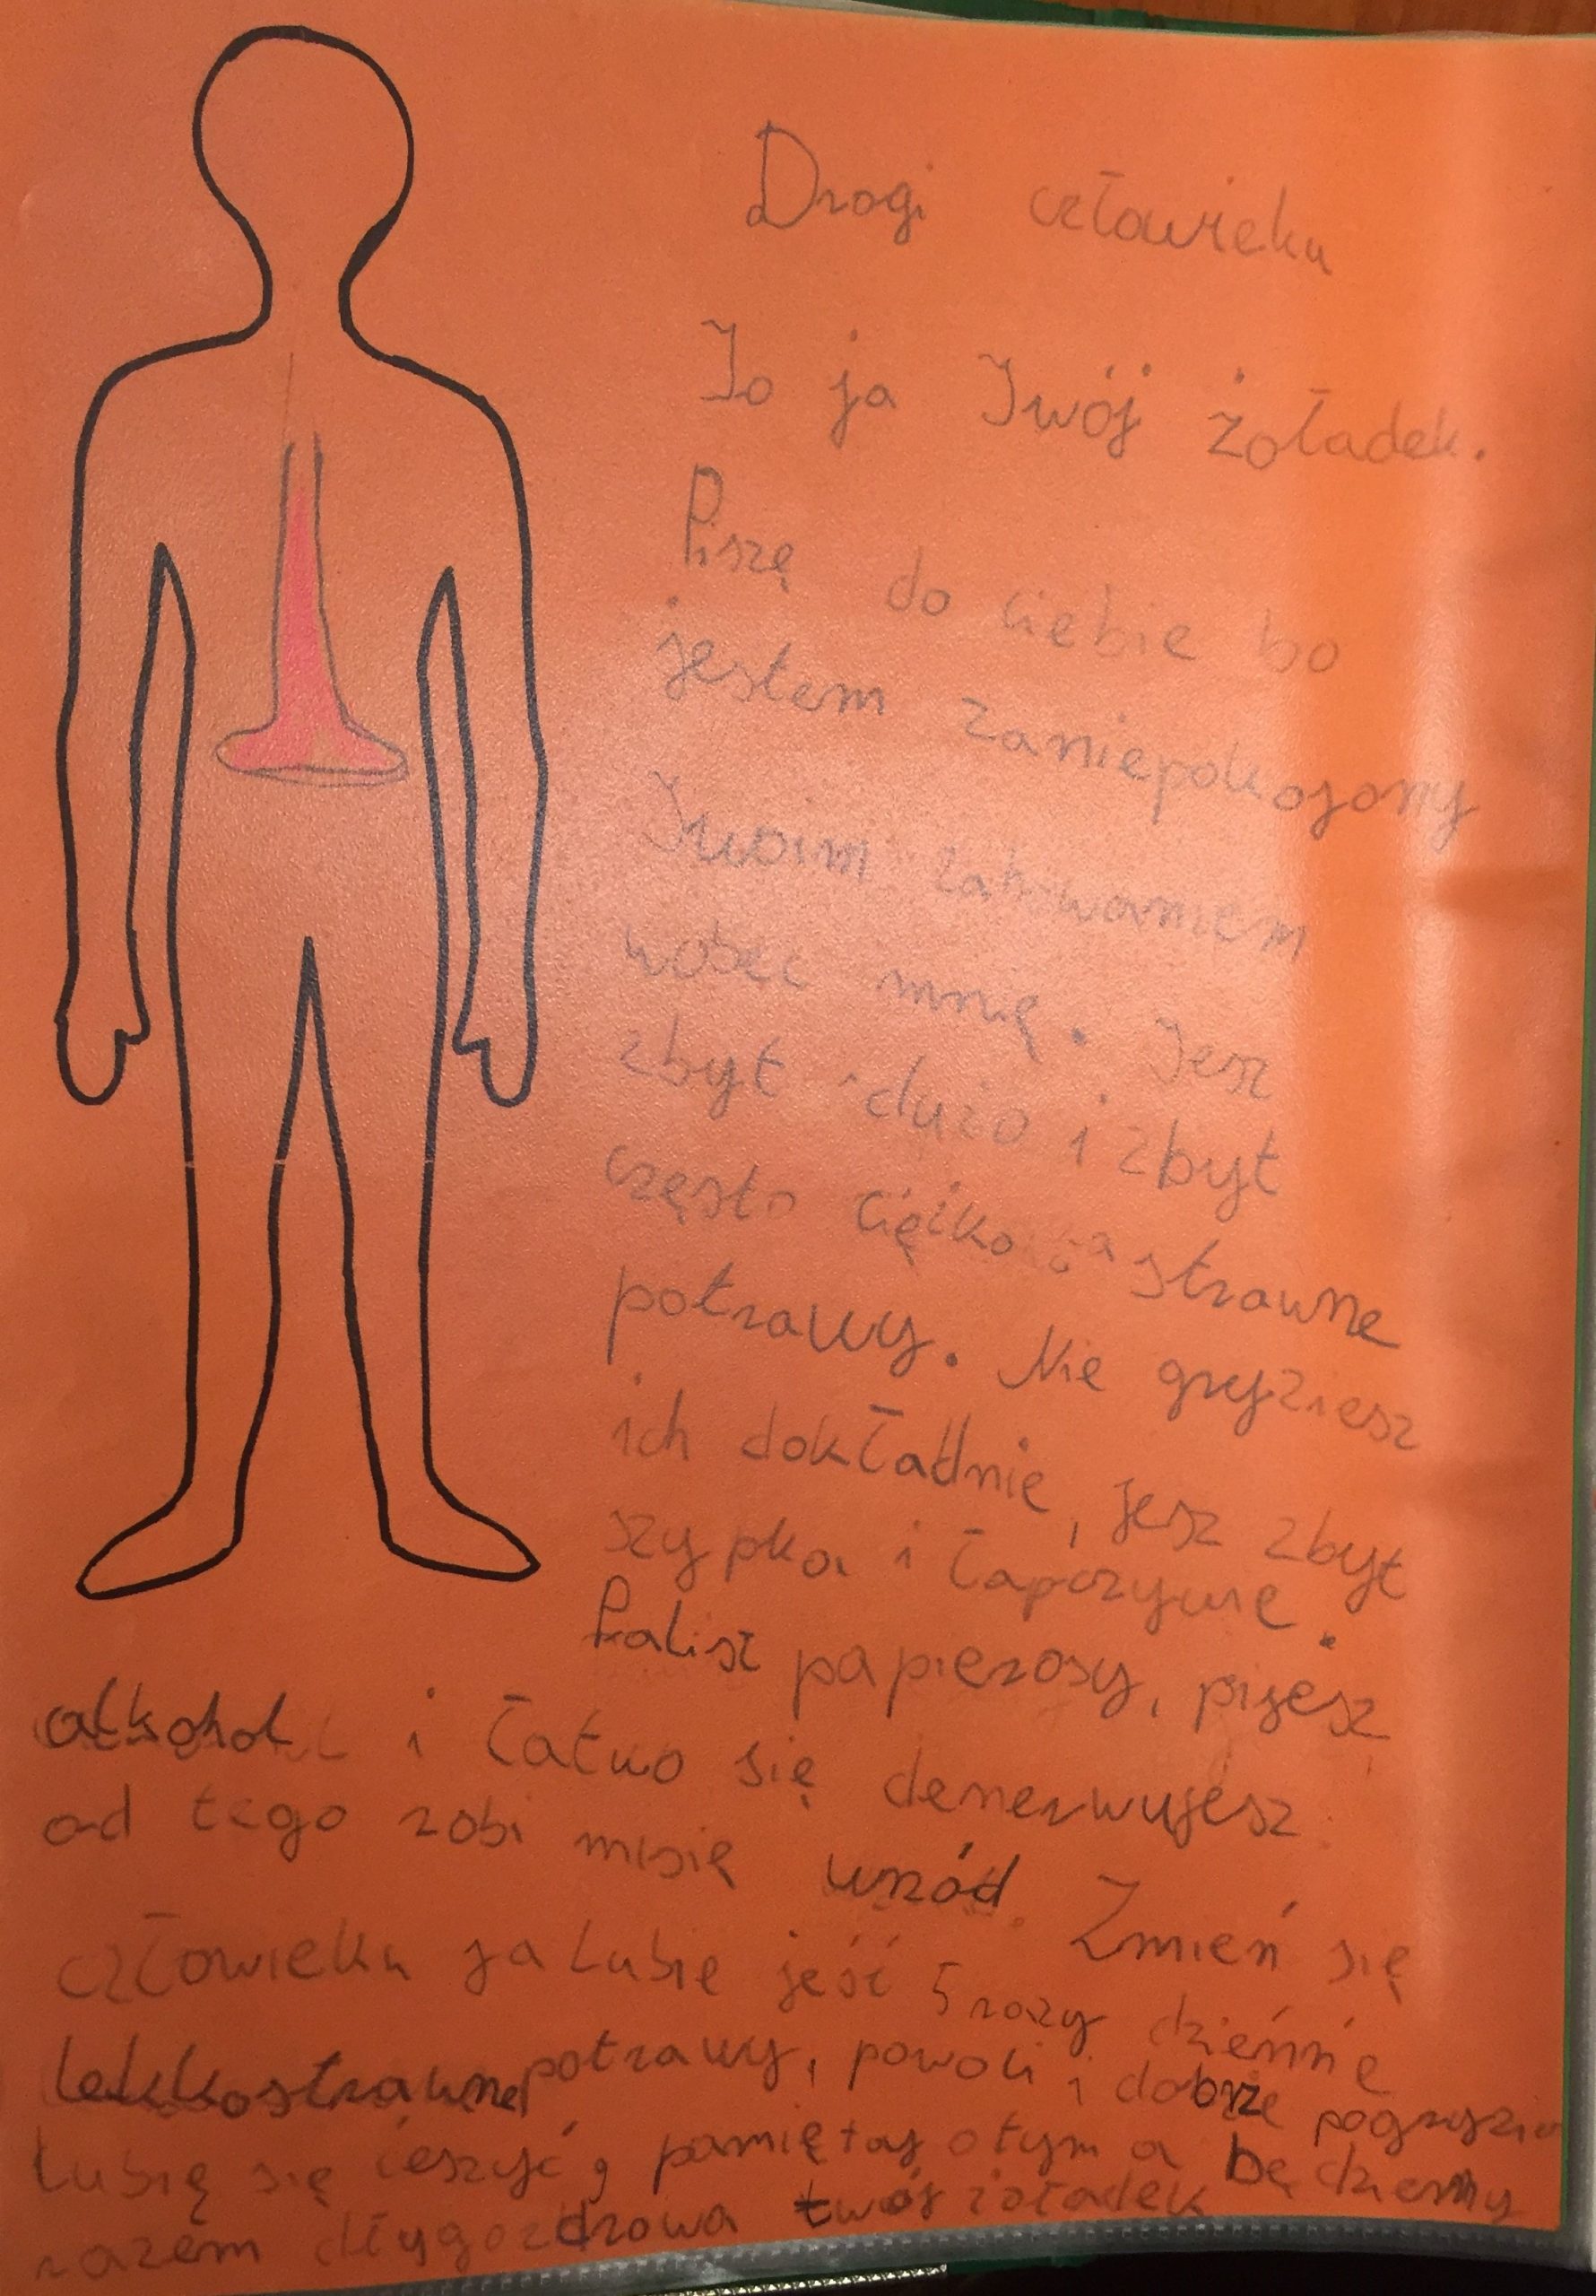 Drogi człowieku
To ja Twój żoładek.
Piszę do ciebie bo
jestem zaniepokojony
Twoim zahwaniem
wobec mnię. Jesz
zbyt dużo i zbyt
często ciężko strawne
potrawy. Nie gryziesz
ich dokładnie, jesz zbyt
szypko i łapczywie.
Palisz papierosy, pijesz
alkohol i łatwo się denerwujesz
od tego robi misię wrzód. Zmień się
człowieku ja lubię jeść 5 razy dzieńnie
lekkostrawne potrawy, powoli i dobrze
lubię się ćeszyć, pamiętaj otym a będziemy
razem dłygo zdrowa twój żoładek